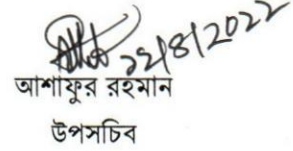 ১২/৪/2022
আশাফুর রহমান
উপসচিব